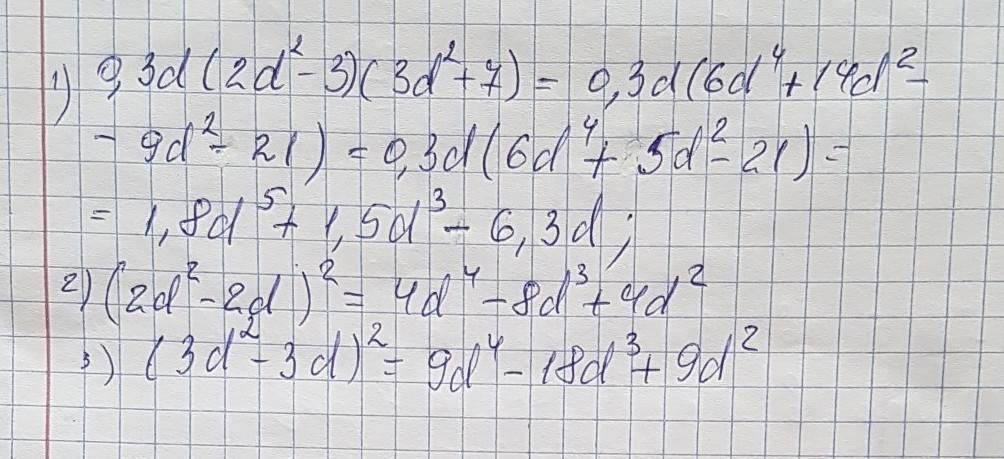 1) 0,3d(2d²-3)(3d²+7) = 0,3d(6d⁴+14d²-
- 9d²-21) = 0,3d(6d⁴+5d²-21) =
= 1,8d⁵+1,5d³-6,3d;
2) (2d²-2d)² = 4d⁴-8d³+4d²
3) (3d²-3d)² = 9d⁴-18d³+9d²